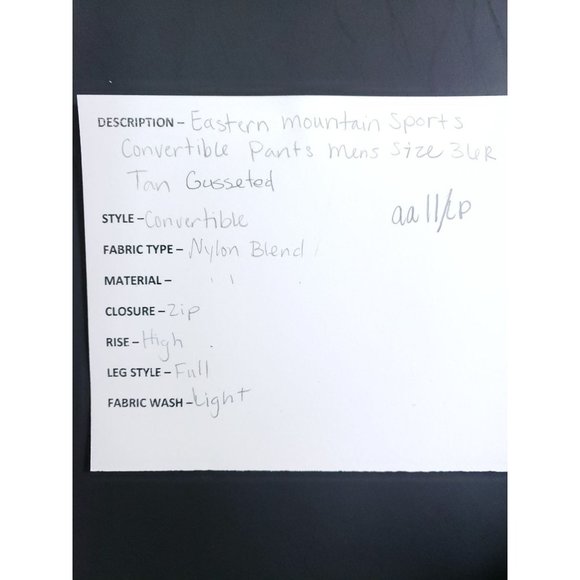 DESCRIPTION - Eastern Mountain Sports
Convertible Pants Mens Size 36R
Tan Gusseted
STYLE - Convertible
aa11/LP
FABRIC TYPE - Nylon Blend
MATERIAL - ı ı
CLOSURE - Zip
RISE - High
LEG STYLE - Full
FABRIC WASH - Light